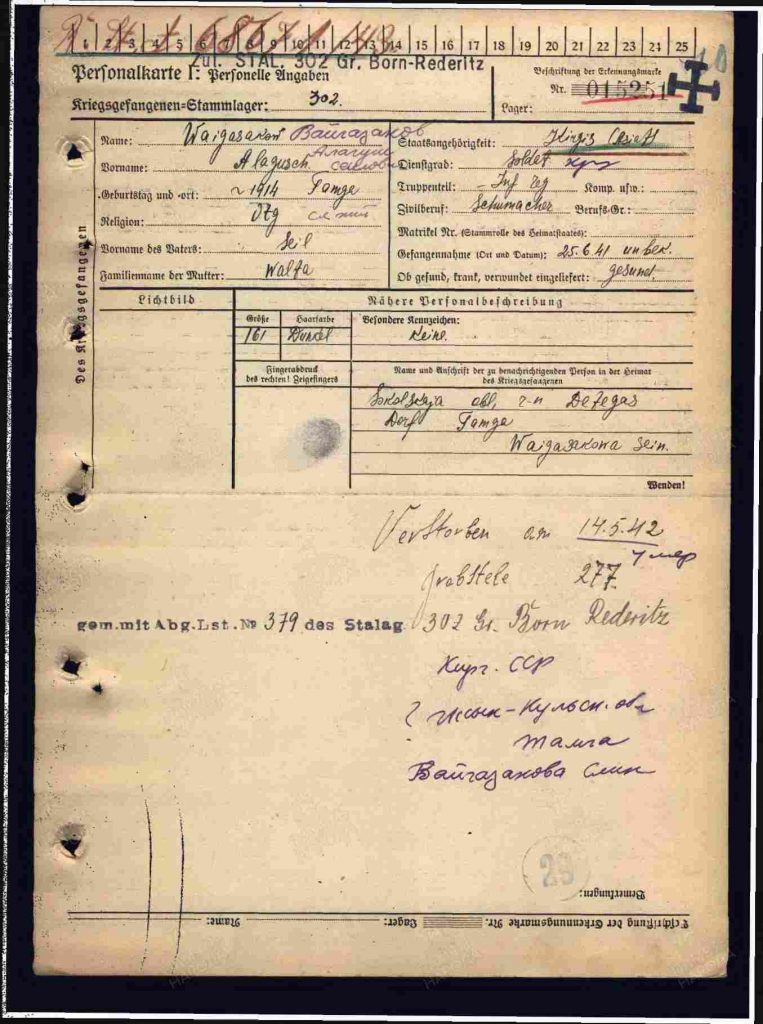 1 2 3 4 5 6 7 8 9 10 11 12 13 14 15 16 17 18 19 20 21 22 23 24 25
Zul. STAL. 302 Gr. Born-Rederitz
Personalkarte I: Personelle Angaben
Kriegsgefangenen-Stammlager: 302.
Beschriftung der Erkennungsmarke
Nr. 015251
Lager:
Des Kriegsgefangenen
Name: Waigasakow Вайгазаков
Vorname: Alagusch Алагуш
Geburtstag und -ort: ~ 1914 Tamga
Religion:
Vorname des Vaters: Seil
Familienname der Mutter: Walta
Staatsangehörigkeit: Kirgis (Asiat)
Dienstgrad: Soldat
Truppenteil: Inf Reg Komp. usw.:
Zivilberuf: Schumacher Berufs-Gr.:
Matrikel Nr. (Stammrolle des Heimatstaates):
Gefangennahme (Ort und Datum): 25.6.41 unbek.
Ob gesund, krank, verwundet eingeliefert: gesund.
Lichtbild
Nähere Personalbeschreibung
Größe Haarfarbe Besondere Kennzeichen:
161 Dunkel Keine.
Fingerabdruck
des rechten! Zeigefingers
Name und Anschrift der zu benachrichtigenden Person in der Heimat
des Kriegsgefangenen
obl, r-n
Dorf Tamga
Waigasakowa Sein.
Wenden!
Verstorben am 14.5.42
умер
Grabstele 277.
gem. mit Abg. Lst. № 379 des Stalag 302 Gr. Born Rederitz
Кирг. ССР
? Иссык-Кульск. обл
Тамга
Вайгазакова Сеин
23
Bemerkungen:
Beschriftung der Erkennungsmarke Nr. Lager: Name: